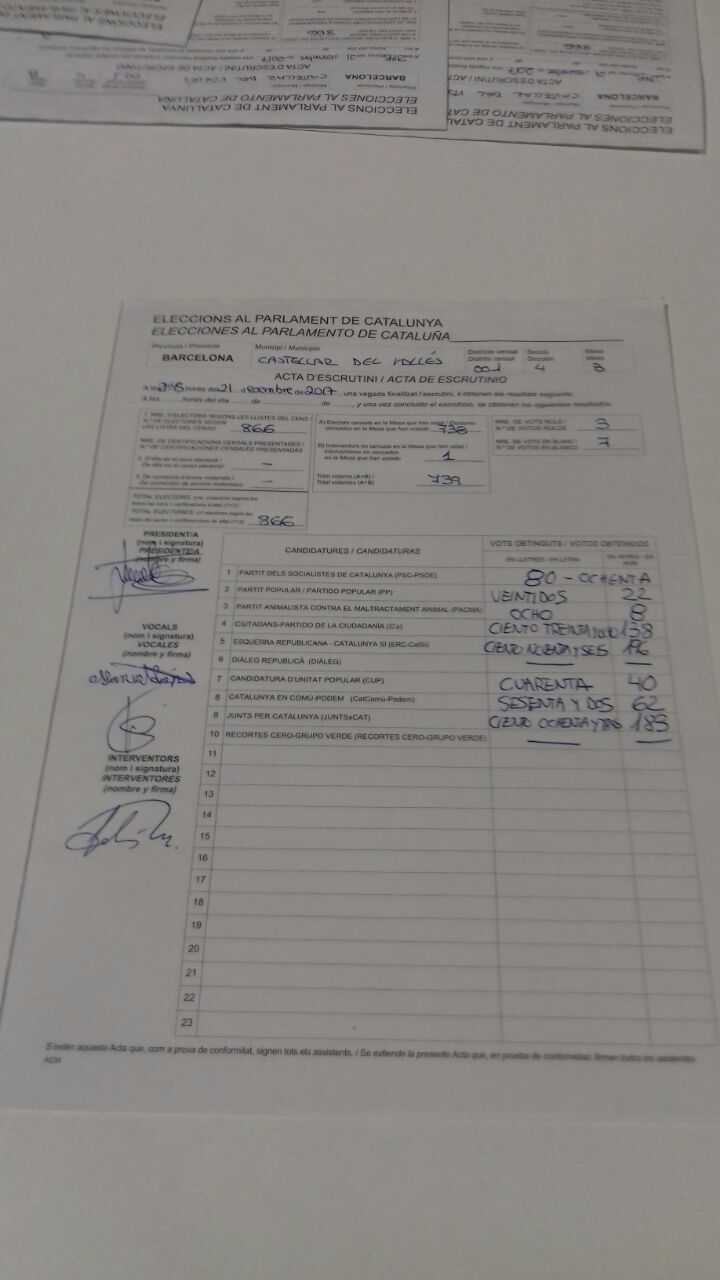 ELECCIONES AL PARLAMENTO DE CATALUÑA
ELECCIONS AL PARLAMENT DE CATALUNYA
BARCELONA CASTELLAR DEL VALLÈS
ACTA D'ESCRUTINI / ACTA DE ESCRUTINIO
866
ELECCIONS AL PARLAMENT DE CATALUNYA
ELECCIONES AL PARLAMENTO DE CATALUÑA
BARCELONA CASTELLAR DEL
ACTA D'ESCRUTINI / ACT
866
ELECCIONS AL PARLAMENT DE CATALUNYA
ELECCIONES AL PARLAMENTO DE CATALUÑA
Província / Provincia Municipi / Municipio Districte censal Secció Mesa
Distrito censal Sección Mesa
BARCELONA CASTELLAR DEL VALLÈS 001 4 B
ACTA D'ESCRUTINI / ACTA DE ESCRUTINIO
A les horas del 21 de 2017, una vegada finalitzat l'escrutini, s'obtenen els resultats següents:
A las horas del día de de , y una vez concluido el escrutinio, se obtienen los siguientes resultados:
1. NRE. D'ELECTORS SEGONS LES LLISTES DEL CENS /
N.º DE ELECTORES SEGÚN
LAS LISTAS DEL CENSO 866
NRE. DE CERTIFICACIONS CENSALS PRESENTADES /
N.º DE CERTIFICACIONES CENSALES PRESENTADAS
2. D'alta en el cens electoral /
De alta en el censo electoral: —
3. De correcció d'errors materials /
De corrección de errores materiales: —
TOTAL ELECTORS
TOTAL ELECTORES 866
A) Electors censats en la Mesa que han votat / Electores
censados en la Mesa que han votado 738
B) Interventors no censats en la Mesa que han votat /
Interventores no censados
en la Mesa que han votado 1
Total votants (A+B) /
Total votantes (A+B) 739
NRE. DE VOTS NULS /
N.º DE VOTOS NULOS 3
NRE. DE VOTS EN BLANC /
N.º DE VOTOS EN BLANCO 7
PRESIDENT/A
(nom i signatura)
PRESIDENTE/A
(nombre y firma)
VOCALS
(nom i signatura)
VOCALES
(nombre y firma)
INTERVENTORS
(nom i signatura)
INTERVENTORES
(nombre y firma)
CANDIDATURES / CANDIDATURAS VOTS OBTINGUTS / VOTOS OBTENIDOS
EN LLETRES / EN LETRA EN XIFRES / EN
1 PARTIT DELS SOCIALISTES DE CATALUNYA (PSC-PSOE) 80 - OCHENTA
2 PARTIT POPULAR / PARTIDO POPULAR (PP) VEINTIDOS 22
3 PARTIT ANIMALISTA CONTRA EL MALTRACTAMENT ANIMAL (PACMA) OCHO 8
4 CIUTADANS-PARTIDO DE LA CIUDADANÍA (C's) CIENTO TREINTA Y OCHO 138
5 ESQUERRA REPUBLICANA - CATALUNYA SÍ (ERC-CatSí) CIENTO NOVENTA Y SEIS 196
6 DIÀLEG REPUBLICÀ (DIÀLEG) — —
7 CANDIDATURA D'UNITAT POPULAR (CUP) CUARENTA 40
8 CATALUNYA EN COMÚ-PODEM (CatComú-Podem) SESENTA Y DOS 62
9 JUNTS PER CATALUNYA (JUNTSxCAT) CIENTO OCHENTA Y TRES 183
10 RECORTES CERO-GRUPO VERDE (RECORTES CERO-GRUPO VERDE) — —
11
12
13
14
15
16
17
18
19
20
21
22
23
S'estén aquesta Acta que, com a prova de conformitat, signen tots els assistents. / Se extiende la presente Acta que, en prueba de conformidad, firman todos los asistentes.
AEM